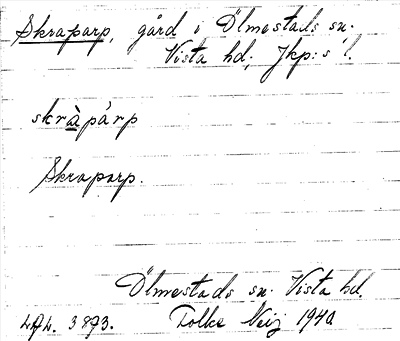 Skraparp, gård i Ölmestads sn.
Vista hd, Jkp:s l.
skràpárp
Skraparp.
Ölmestads sn. Vista hd.
Folke Neij 1940